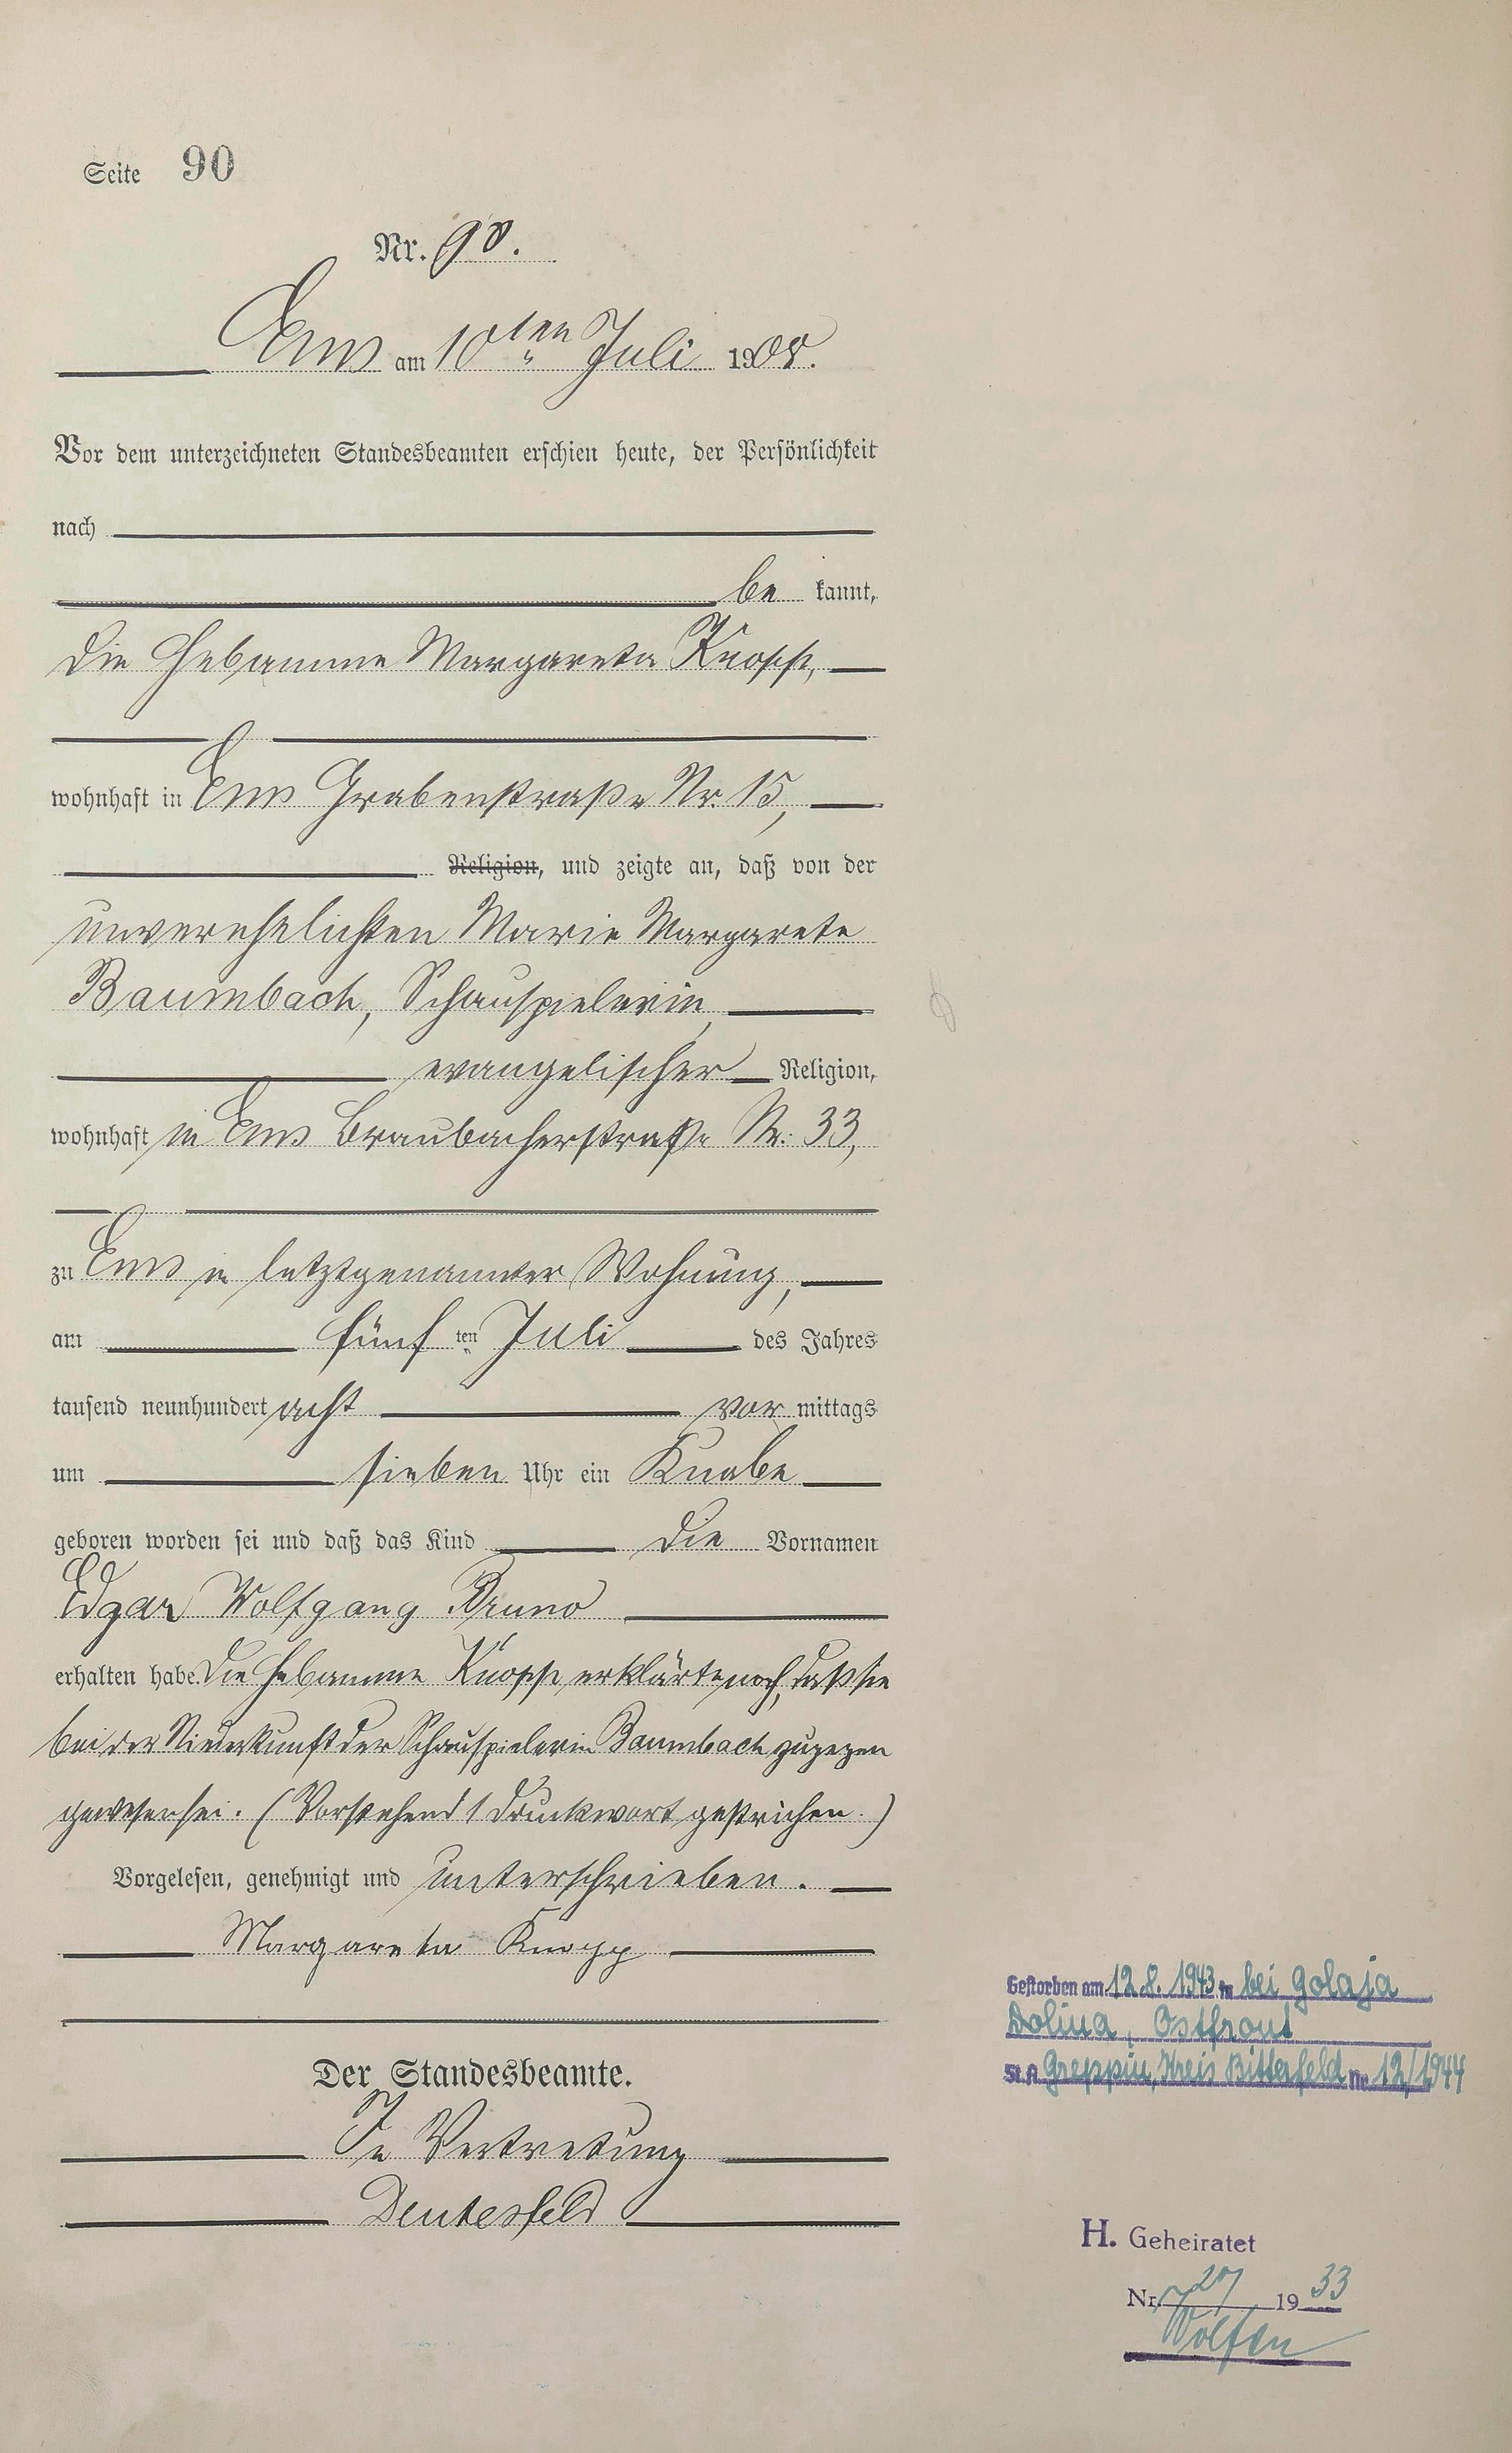 Seite 90
Nr. 90.
Ems am 10ten Juli 1908.
Vor dem unterzeichneten Standesbeamten erschien heute, der Persönlichkeit
nach
be kannt,
die Hebamme Margareta Knopp,
wohnhaft in Ems Grabenstraße Nr. 15,
Religion, und zeigte an, daß von der
unverehelichten Marie Margarete
Baumbach, Schauspielerin,
evangelischer Religion,
wohnhaft in Ems Braubacherstraße Nr. 33,
zu Ems in letztgenannter Wohnung,
am fünf ten Juli des Jahres
tausend neunhundert acht vor mittags
um sieben Uhr ein Knabe
geboren worden sei und daß das Kind die Vornamen
Edgar Wolfgang Bruno
erhalten habe. Die Hebamme Knopp erklärte noch, daß sie
bei der Niederkunft der Schauspielerin Baumbach zugegen
gewesen sei. (Vorstehend 1 Druckwort gestrichen.)
Vorgelesen, genehmigt und unterschrieben.
Margareta Knopp
Der Standesbeamte.
In Vertretung
Deutesfeld
Gestorben am 12.8.1943 in bei Golaja
Dolina, Ostfront
St.A Greppin, Kreis Bitterfeld Nr. 12/1944
H. Geheiratet
Nr. 27 1933
Wolfen